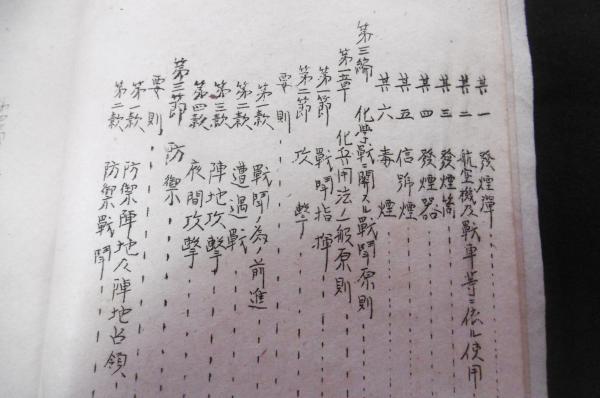 其一 發煙彈
其二 航空機及戰車等ニ依ル使用
其三 發煙筒
其四 發煙器
其五 信號煙
其六 毒煙
第三編 化學戰ニ關スル戰鬥原則
第一章 化兵用法ノ一般原則
第一節 戰鬥指揮
第二節 攻擊
要則
第一款 戰鬥為前進
第二款 遭遇戰
第三款 陣地攻擊
第四款 夜間攻擊
第三節 防禦
要則
第一款 防禦陣地及陣地占領
第二款 防禦戰鬥